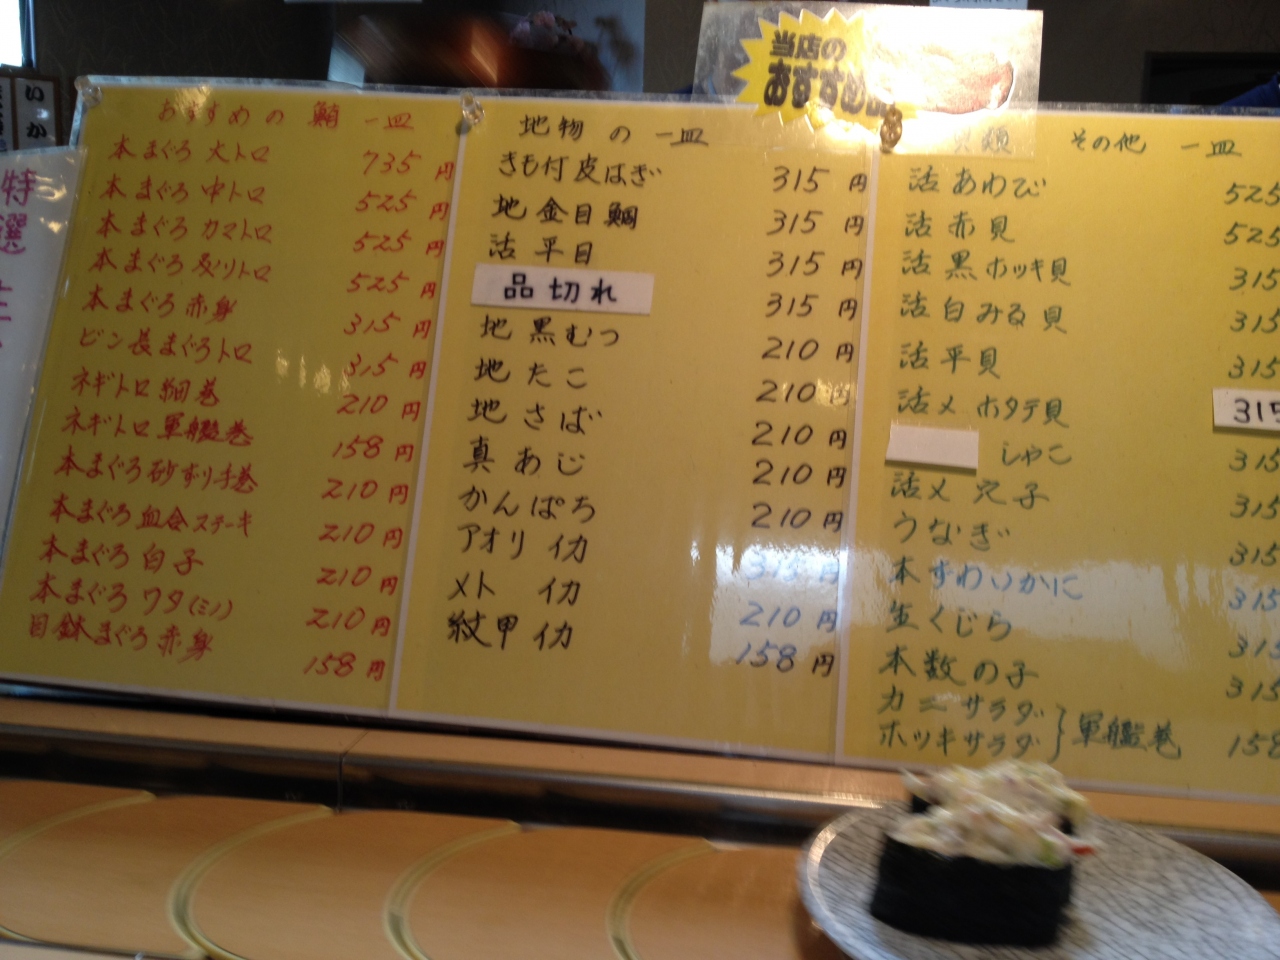 当店の
おすすめ品
いか
特選
おすすめの 鮪 一皿
本まぐろ 大トロ 735円
本まぐろ 中トロ 525円
本まぐろ カマトロ 525円
本まぐろ 炙りトロ 525円
本まぐろ 赤身 315円
ビン長まぐろトロ 315円
ネギトロ細巻 210円
ネギトロ軍艦巻 158円
本まぐろ砂ずり手巻 210円
本まぐろ血合ステーキ 210円
本まぐろ白子 210円
本まぐろワタ(ミノ) 210円
目鉢まぐろ赤身 158円
地物の一皿
きも付皮はぎ 315円
地金目鯛 315円
活平目 315円
品切れ 315円
地黒むつ 210円
地たこ 210円
地さば 210円
真あじ 210円
かんぱち 210円
アオリイカ 315円
メトイカ 210円
紋甲イカ 158円
貝類 その他 一皿
活あわび 525
活赤貝 525
活黒ホッキ貝 315
活白みる貝 315
活平貝 315
活〆ホタテ貝 315
しゃこ 315
活〆穴子 315
うなぎ 315
本ずわいかに 315
生くじら 315
本数の子 315
カニサラダ
ホッキサラダ } 軍艦巻 158